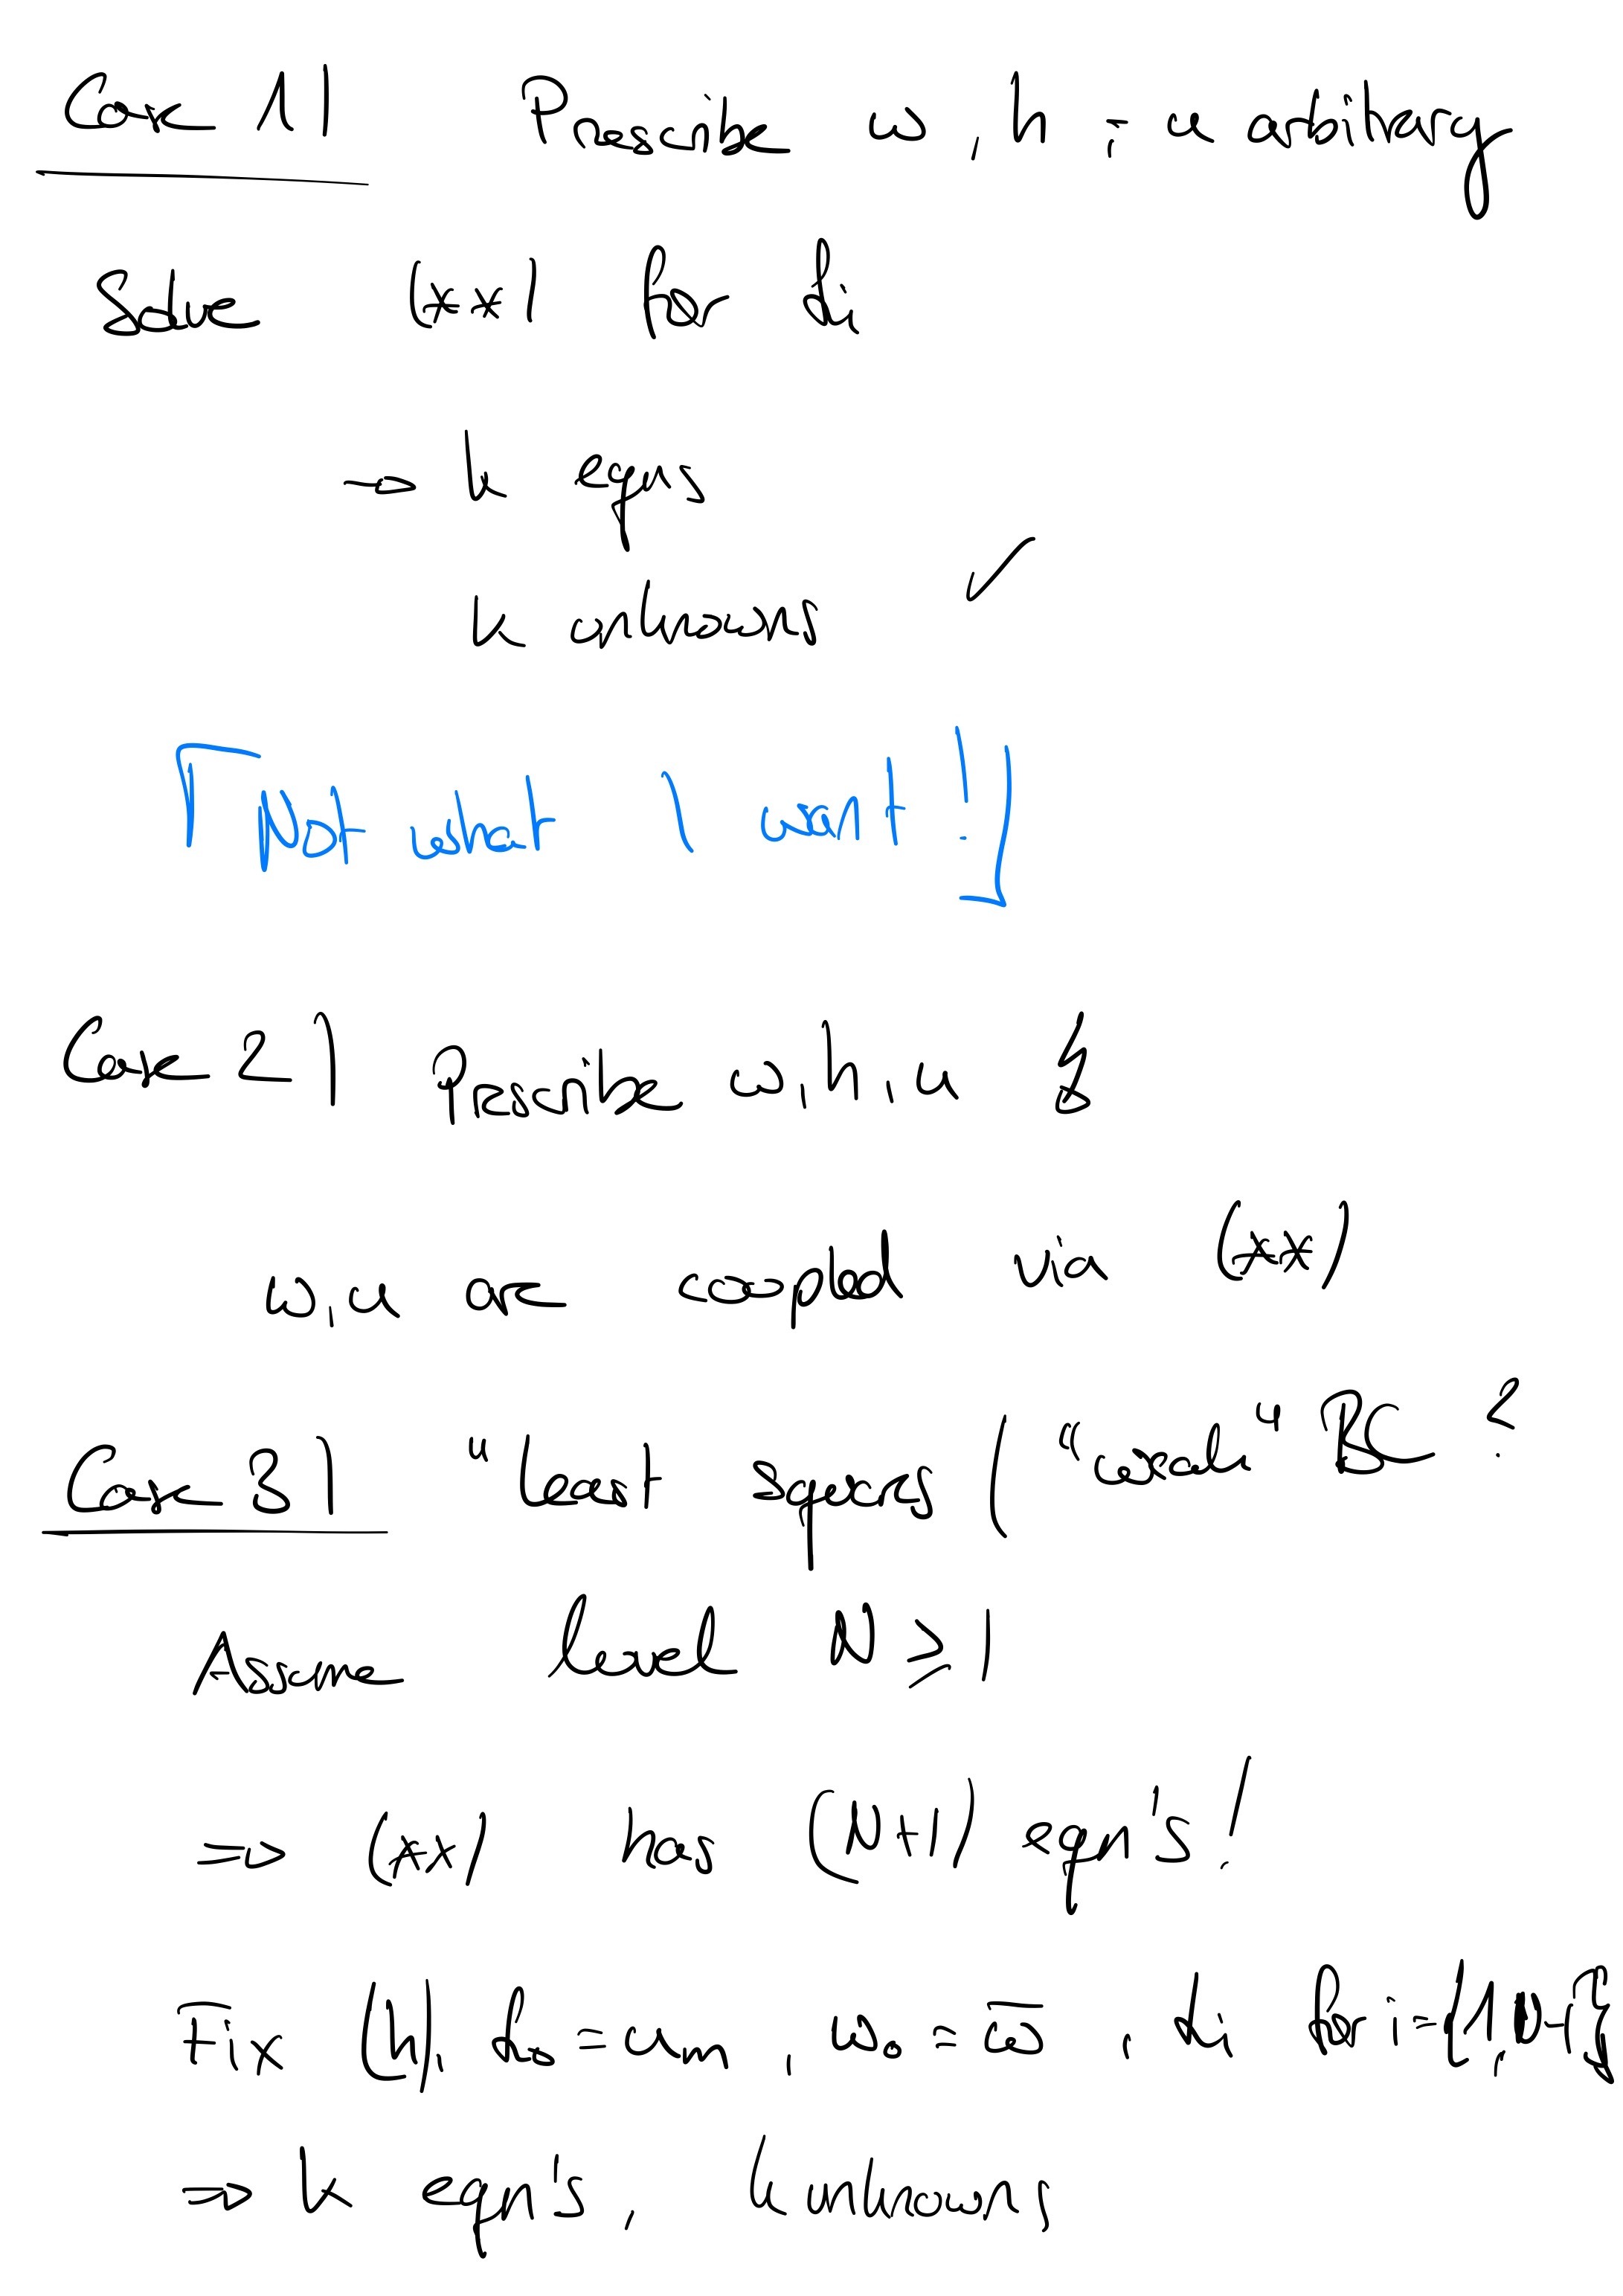 Case 1) Prescribe ω, h - u arbitrary
Solve (**) for αi
→ k eqns
k unknowns ✓
⌈ Not what I want! ⌋
Case 2) Prescribe ω, h, u ↯
ω, u are coupled via (**)
Case 3) "least squares / "weak" BC ?
Assume level N ≥ 1
⇒ (**) has (N+1) eqn's!
Fix (h), = um, ω0 = ω̄, αi for i=
→ k eqn's, k unknowns